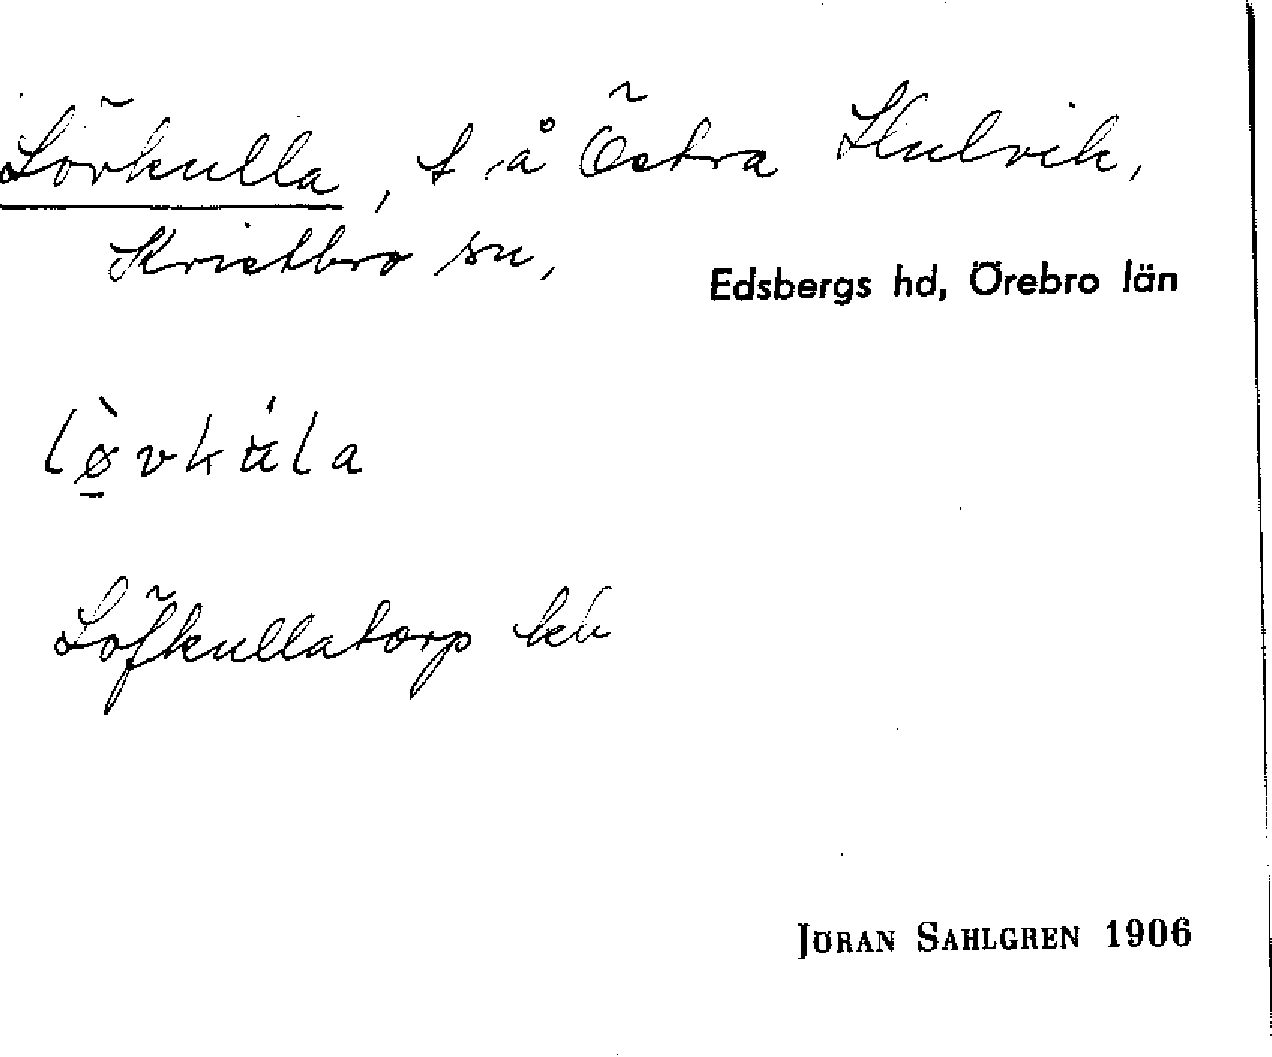 Lövkulla, t å Östra Hulvik,
Kvistbro sn,
Edsbergs hd, Örebro län
lø̀vkùla
Löfkullatorp
JÖRAN SAHLGREN 1906